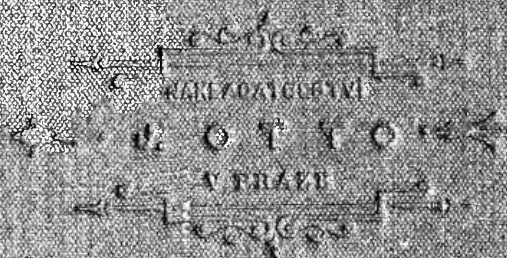 NAKLADATELSTVÍ
J. OTTO
V PRAZE